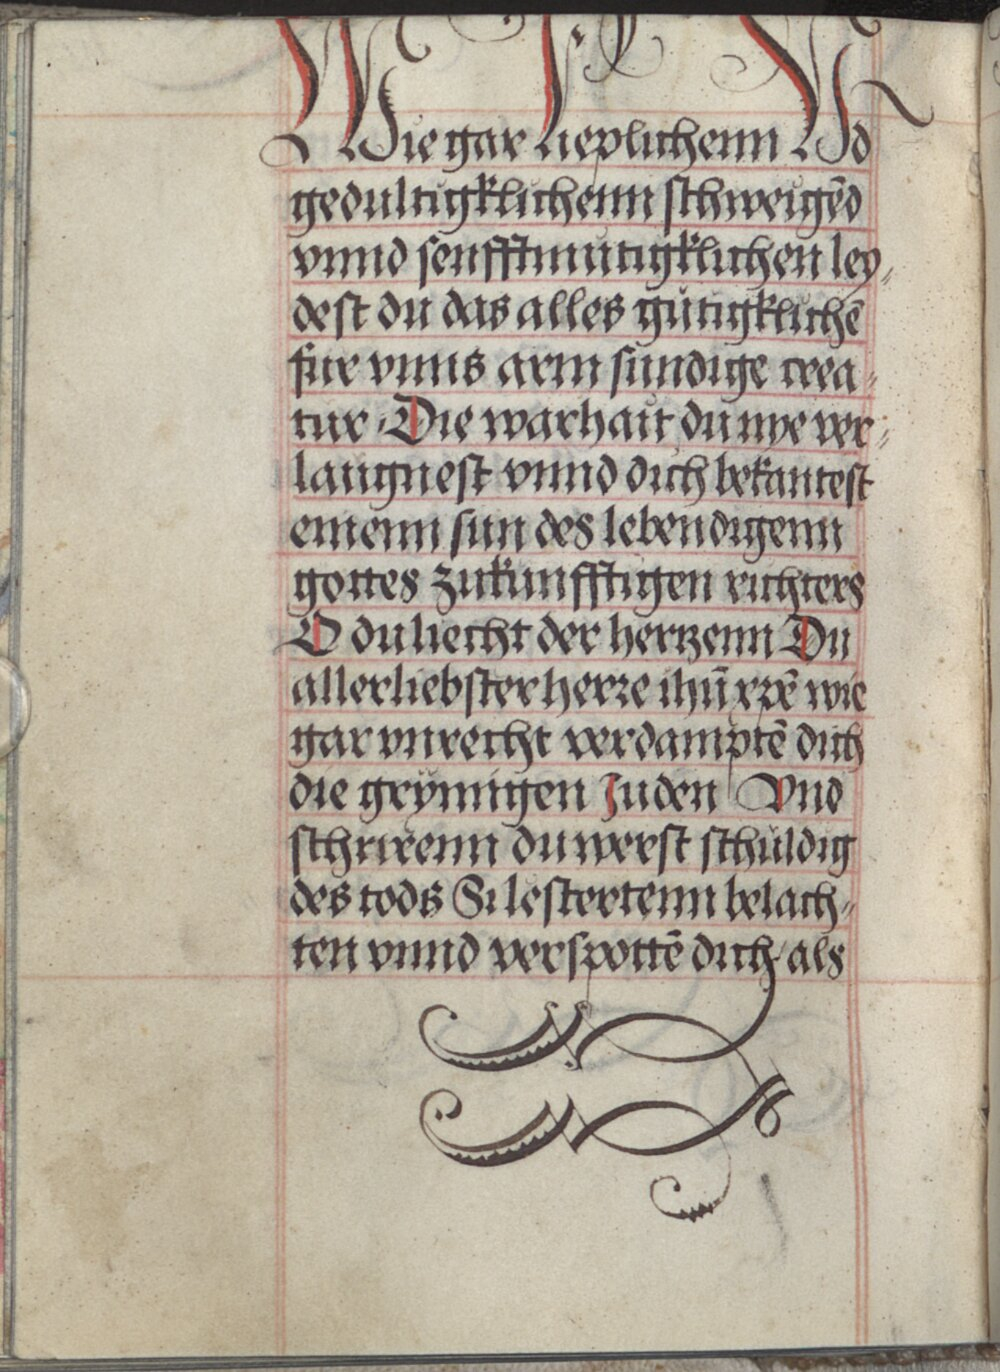 Wie gar lieplichenn Vnd
gedultigklichenn schweigēd
vnnd senfftmütigklichen ley„
dest du das alles gütigklichē
fur vnns arm sündige crea„
tur. Die warhait du nye ver„
laugnest vnnd dich bekantest
einenn sun des lebendigenn
gottes zukunfftigen richters
O du liecht der hertzenn Du
allerliebster herre ihū xpē wie
gar vnrecht verdamptē dich
die grymigen Juden Vnd
schrirenn du werst schuldig
des tods Si lestertenn belach„
ten vnnd verspottē dich als